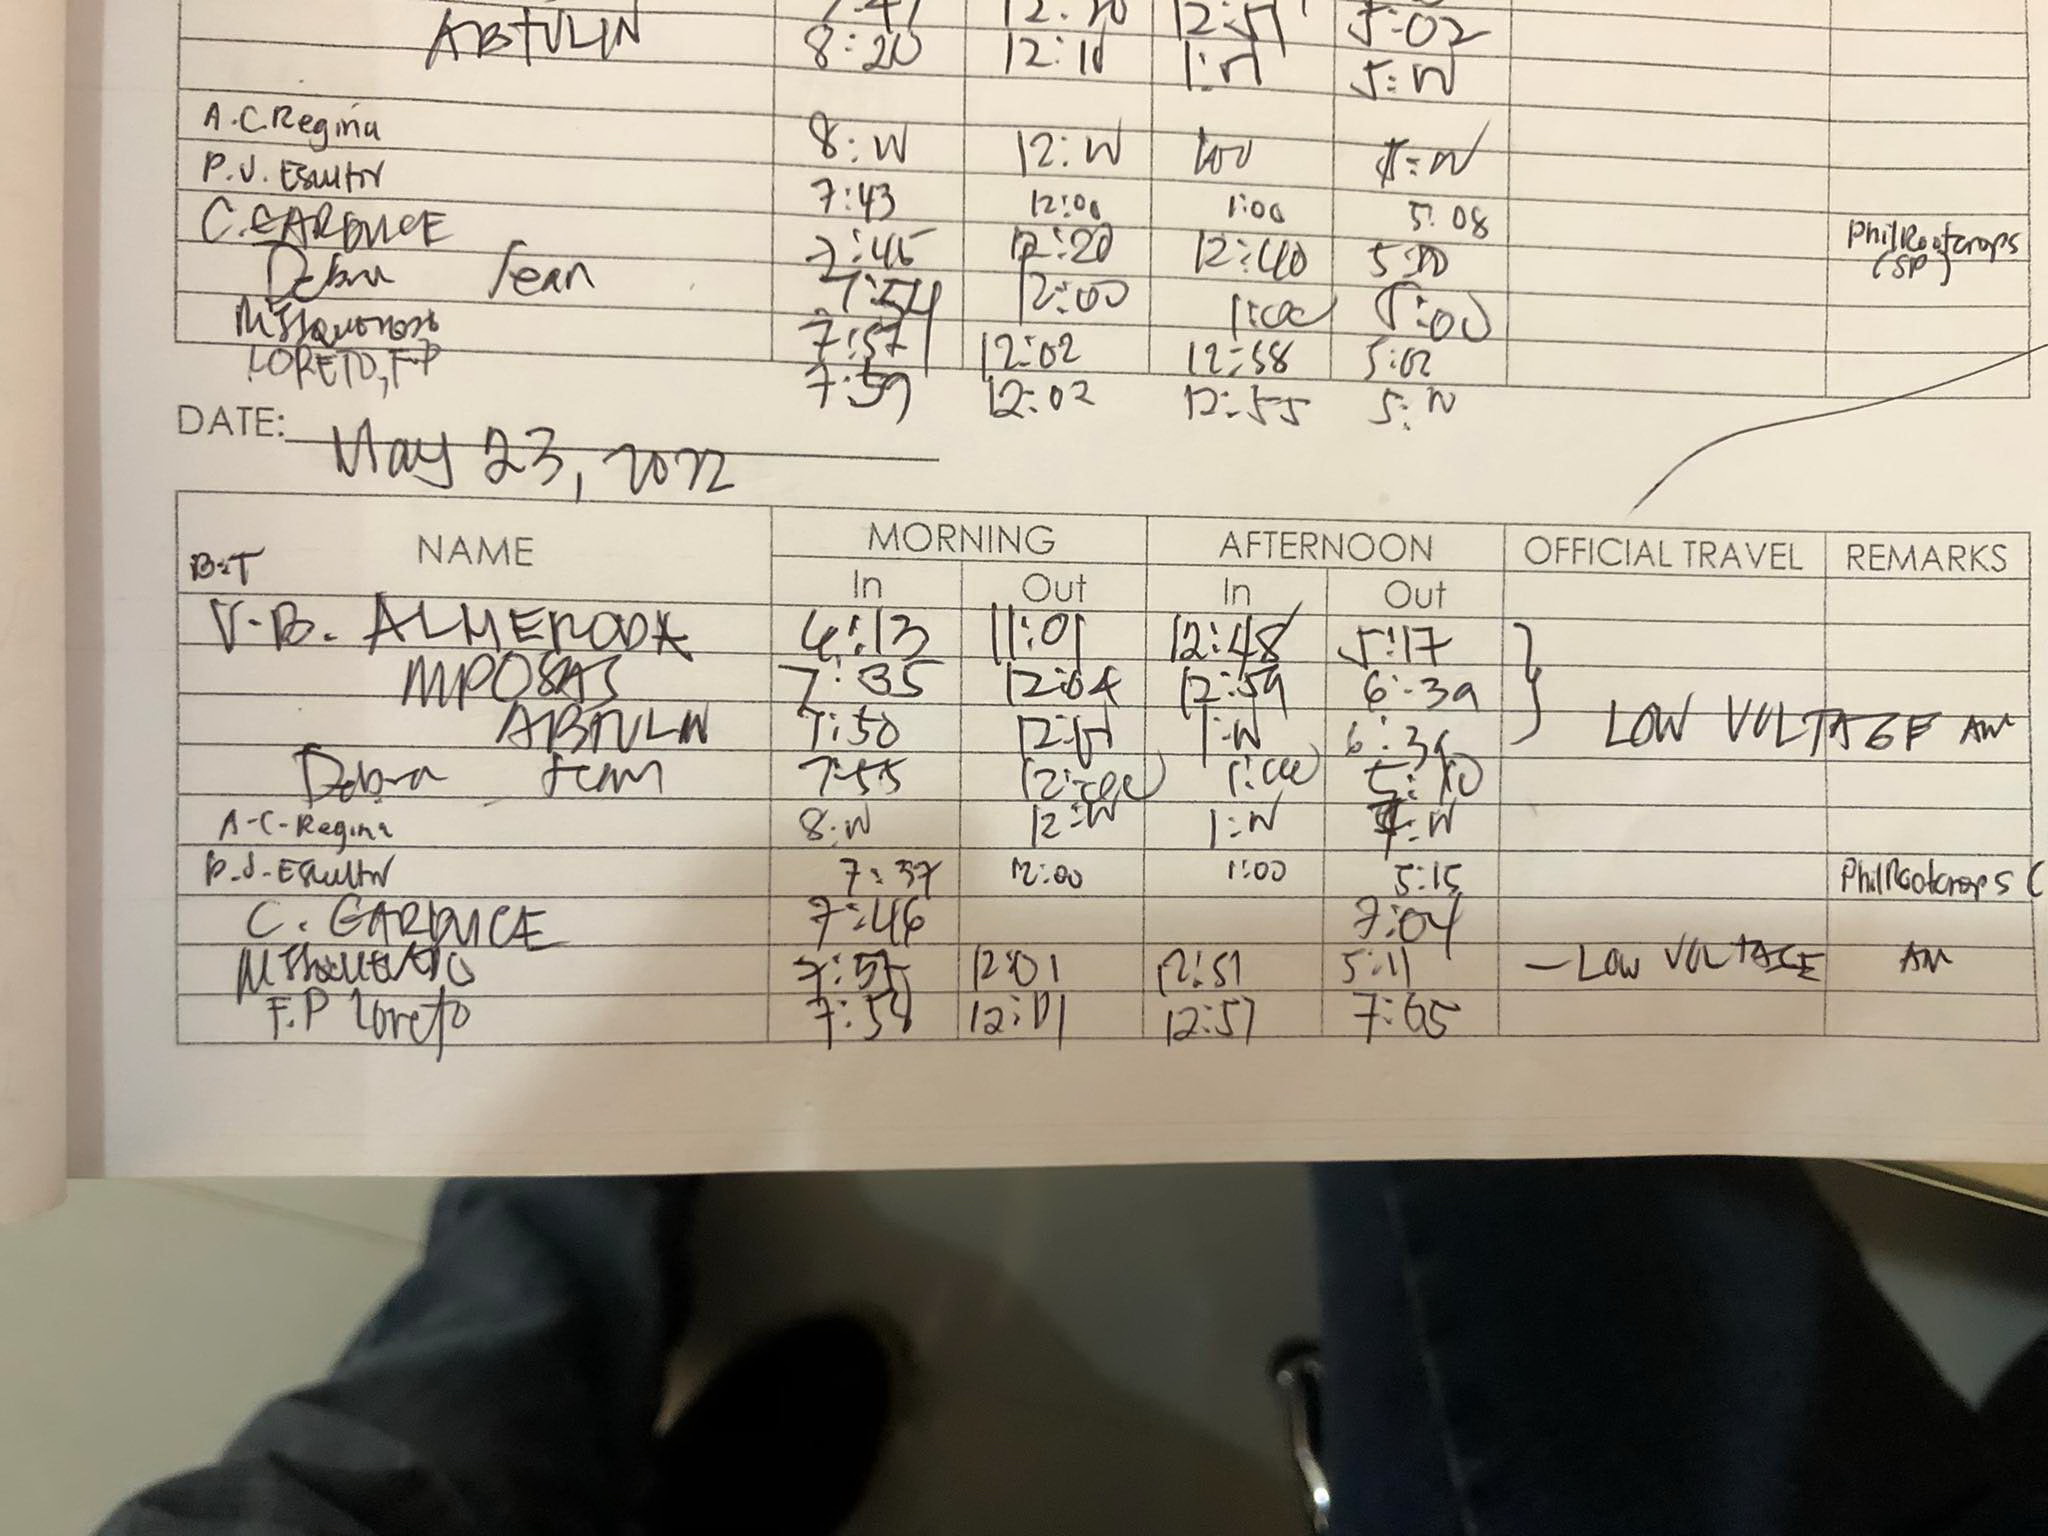 12:20 12:51 5:02
ABTULIN 8:20 12:10 5:00
A.C.Regina 8:00 12:00 1:00
P.J. Escultor 7:43 12:00 1:00 5:08
C. GARDUCE 7:45 12:20 12:40 PhilRootcrops
(SP)
Debra Jean 7:54 12:00 1:00 5:00
7:57 12:02 12:58 5:02
LORETO, F.P 7:59 12:02 12:55 5:00
DATE: May 23, 2022
NAME MORNING AFTERNOON OFFICIAL TRAVEL REMARKS
In Out In Out
V.B. ALMERODA 11:01 12:48 5:17
MPOSAS 7:35 12:04 12:59 6:39
ABTULIN 7:50 1:00 6:39 LOW VOLTAGE AM
Debra Jean 7:55 12:00 1:00 5:10
A-C-Regina 8:00 12:00 1:00
P.J. Escultor 7:37 12:00 1:00 5:15 PhilRootcrops (
C. GARDUCE 7:46 7:04
12:01 12:51 5:11 - LOW VOLTAGE AM
F.P Loreto 7:58 12:01 12:57 7:05